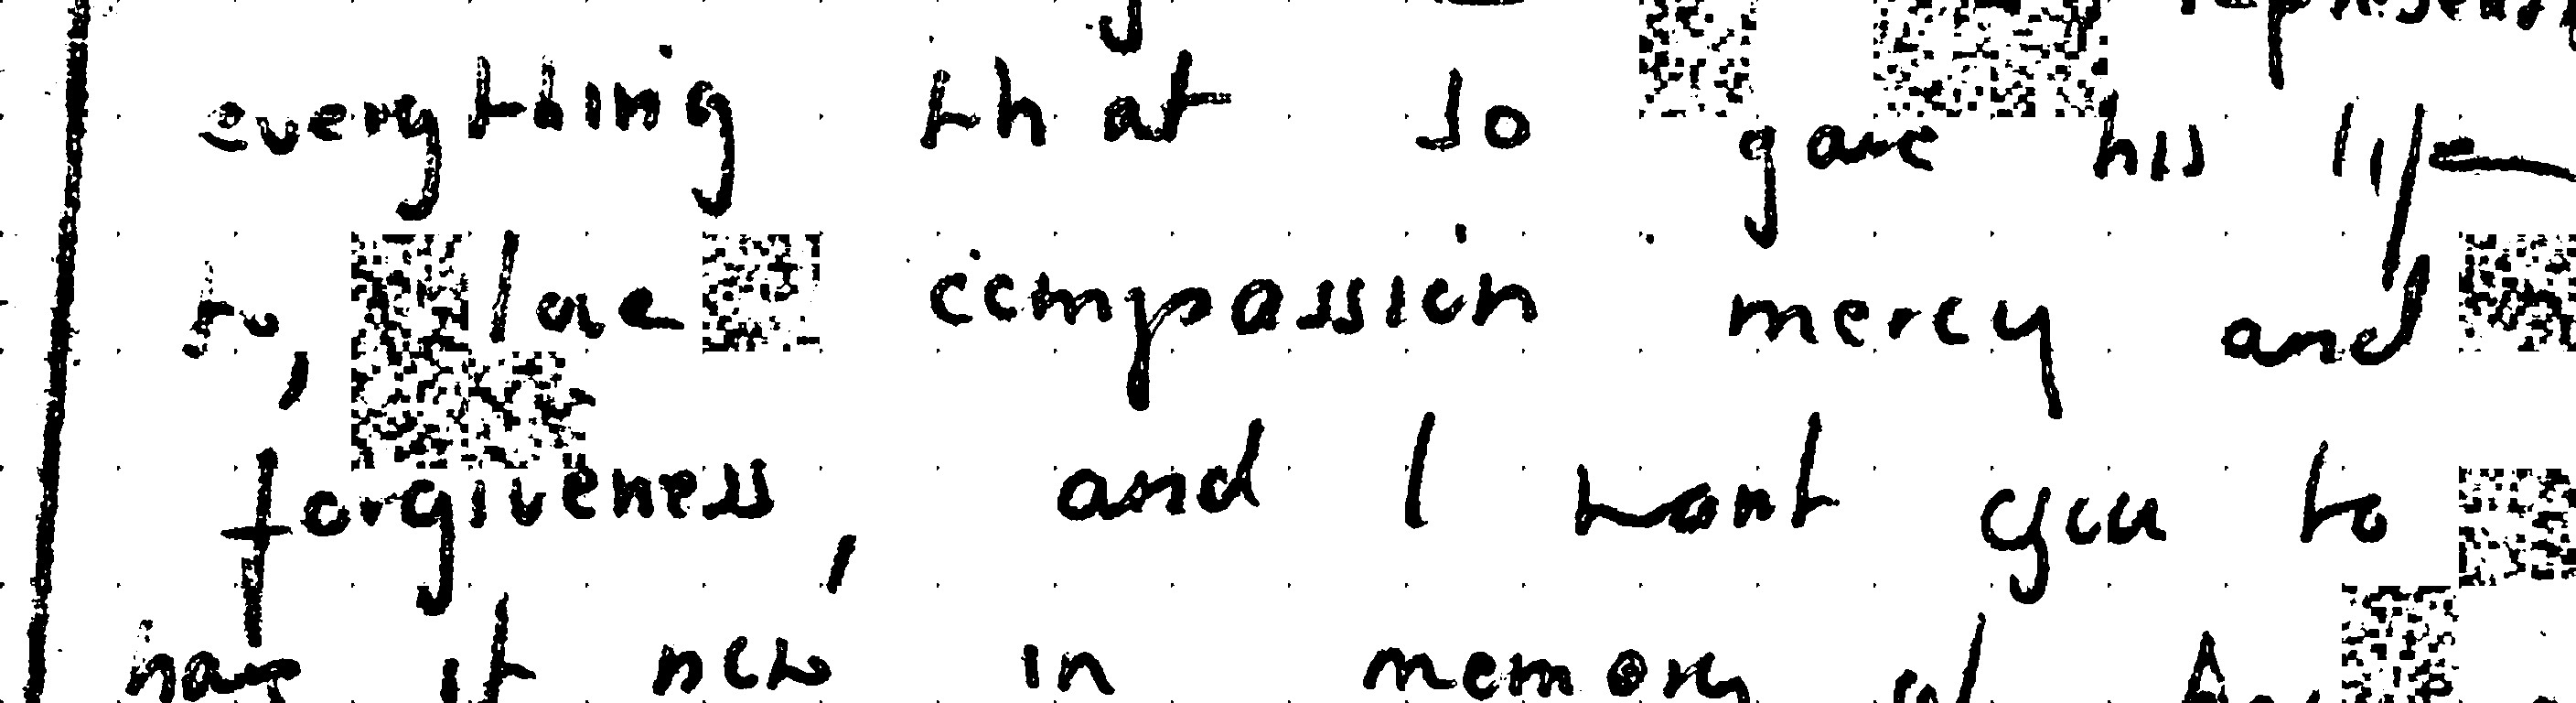 everything that Jo gave his life
to, love compassion mercy and
forgiveness, and I want you to
have it now in memory of